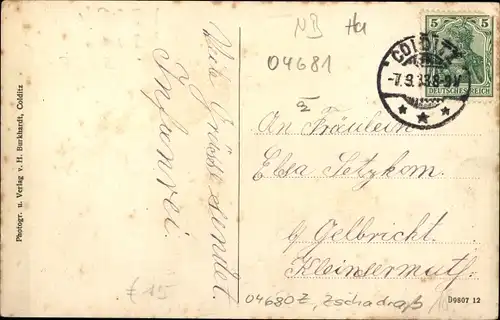 Photogr. u. Verlag v. H. Burkhardt, Colditz
Viele Grüsse sendet
NB Ha
04681
5 5
DEUTSCHES REICH
COLDITZ
-7.9.13.8-9V
An Fräulein
Elsa Setzkorn.
b/ Gelbricht.
Kleinsermuth.
£15
04680Z, Zschadraß
D9807 12